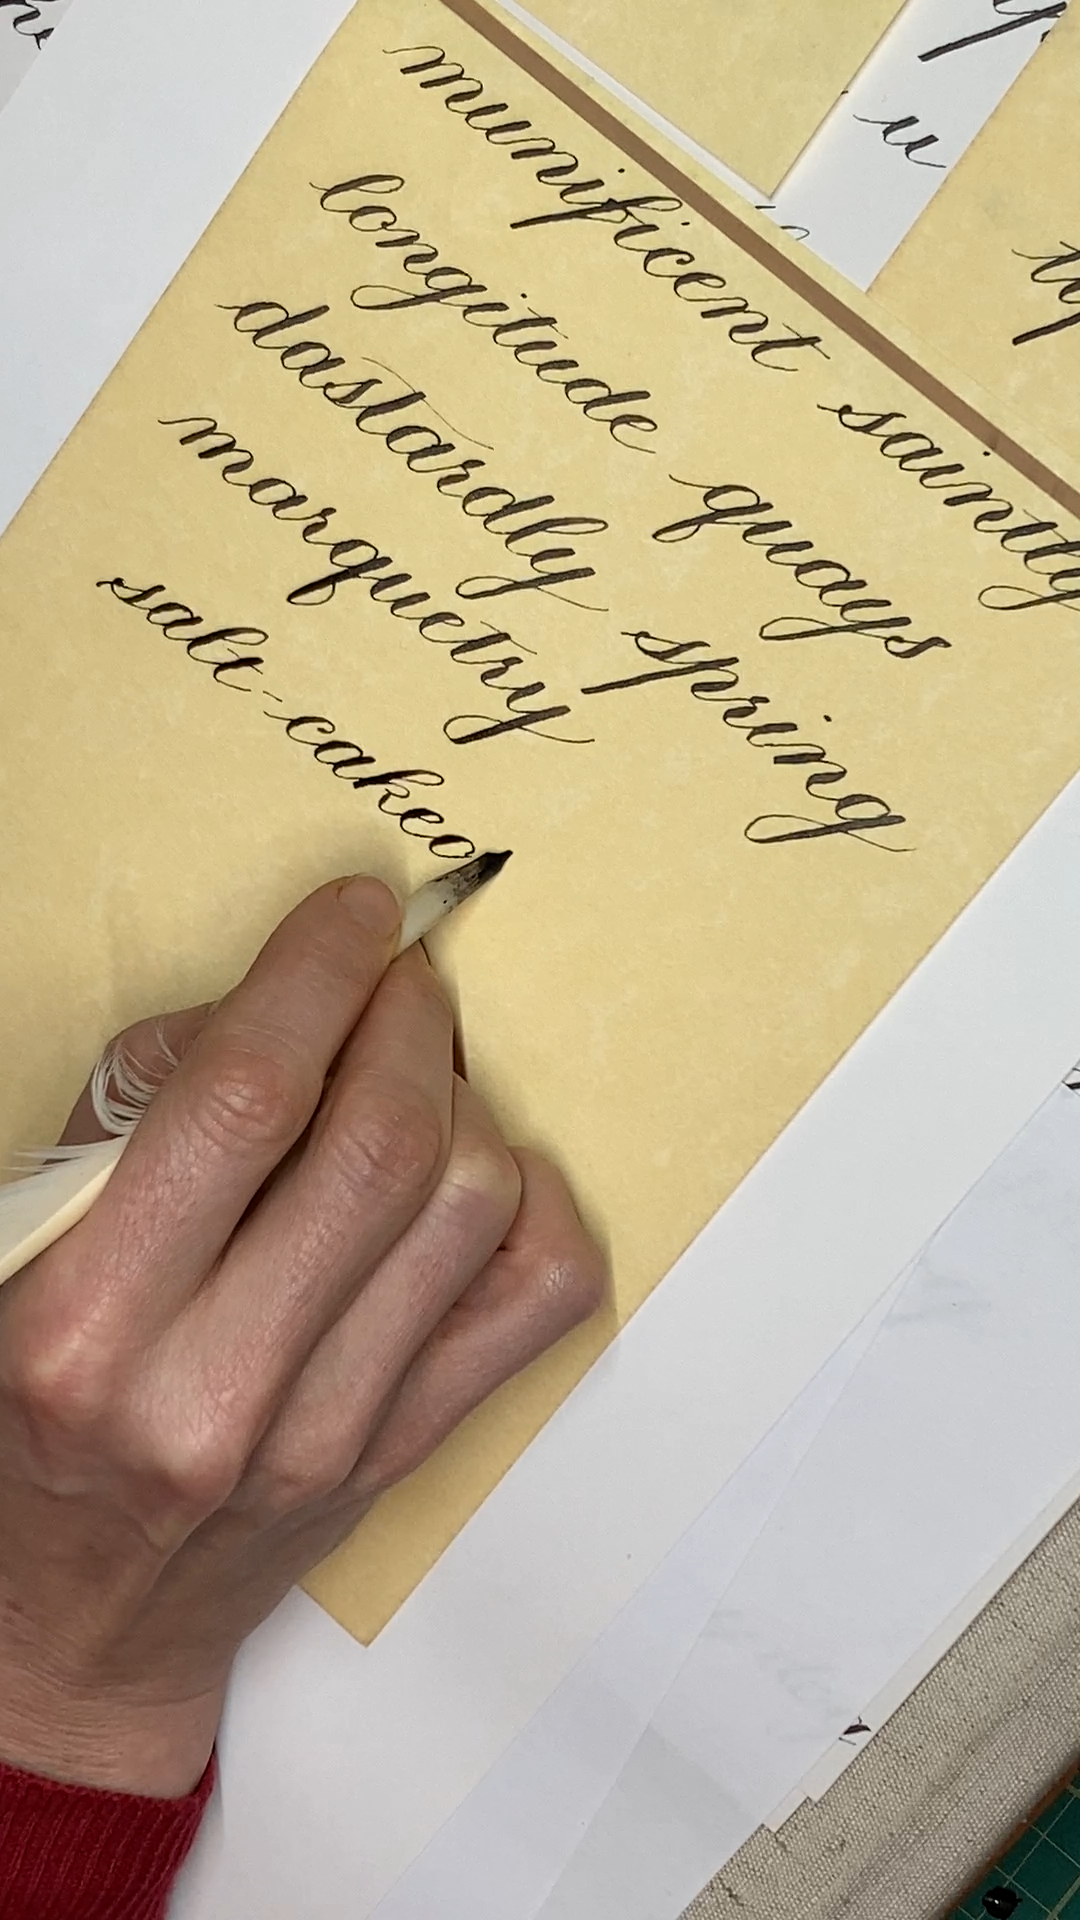 munificent saintly
longitude quays
dastardly spring
marquetry
salt-cakeo
u